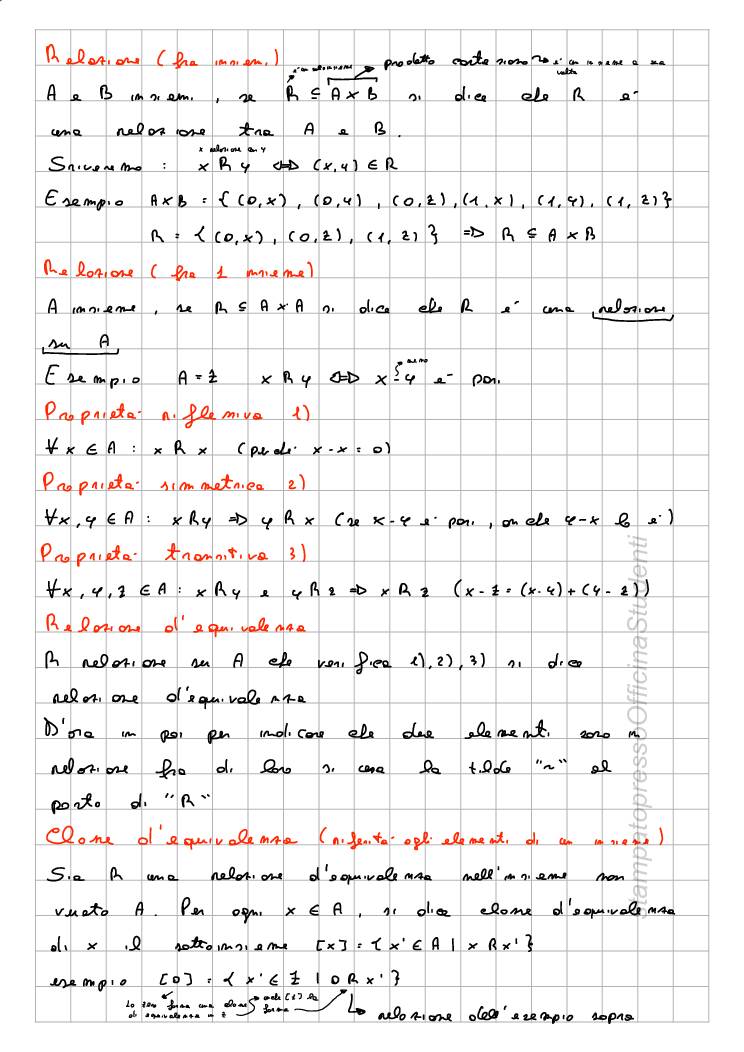 Relazione (fra insiemi)
è un sottoinsieme prodotto cartesiano → è un insieme a sua volta
A e B insiemi, se R ⊆ A×B si dice che R è
una relazione tra A e B.
x relazione con y
Scriveremo : x R y ⟺ (x,y) ∈ R
Esempio A×B = {(0,x), (0,y), (0,z), (1,x), (1,y), (1,z)}
R = {(0,x), (0,z), (1,z)} ⟹ R ⊆ A×B
Relazione (fra 1 insieme)
A insieme, se R ⊆ A×A si dice che R è una relazione
su A
meno
Esempio A=Z x R y ⟺ x-y è pari
Proprietà riflessiva 1)
∀x ∈ A : x R x (perché x-x=0)
Proprietà simmetrica 2)
∀x,y ∈ A : xRy ⟹ yRx (se x-y è pari, anche y-x lo è)
Proprietà transitiva 3)
∀x,y,z ∈ A : xRy e yRz ⟹ xRz (x-z=(x-y)+(y-z))
Relazione d'equivalenza
R relazione su A che verifica 1),2),3) si dice
relazione d'equivalenza
D'ora in poi per indicare che due elementi sono in
relazione fra di loro si usa la tilde "~" al
posto di "R"
Classe d'equivalenza (riferita agli elementi di un insieme)
Sia R una relazione d'equivalenza nell'insieme non
vuoto A. Per ogni x ∈ A, si dice classe d'equivalenza
di x il sottoinsieme [x] = {x' ∈ A | x R x'}
esempio [0] = {x' ∈ Z | 0 R x'}
Lo zero forma una classe di equivalenza in Z anche [1] la forma
relazione dell'esempio sopra
StampatopressoOfficinaStudenti